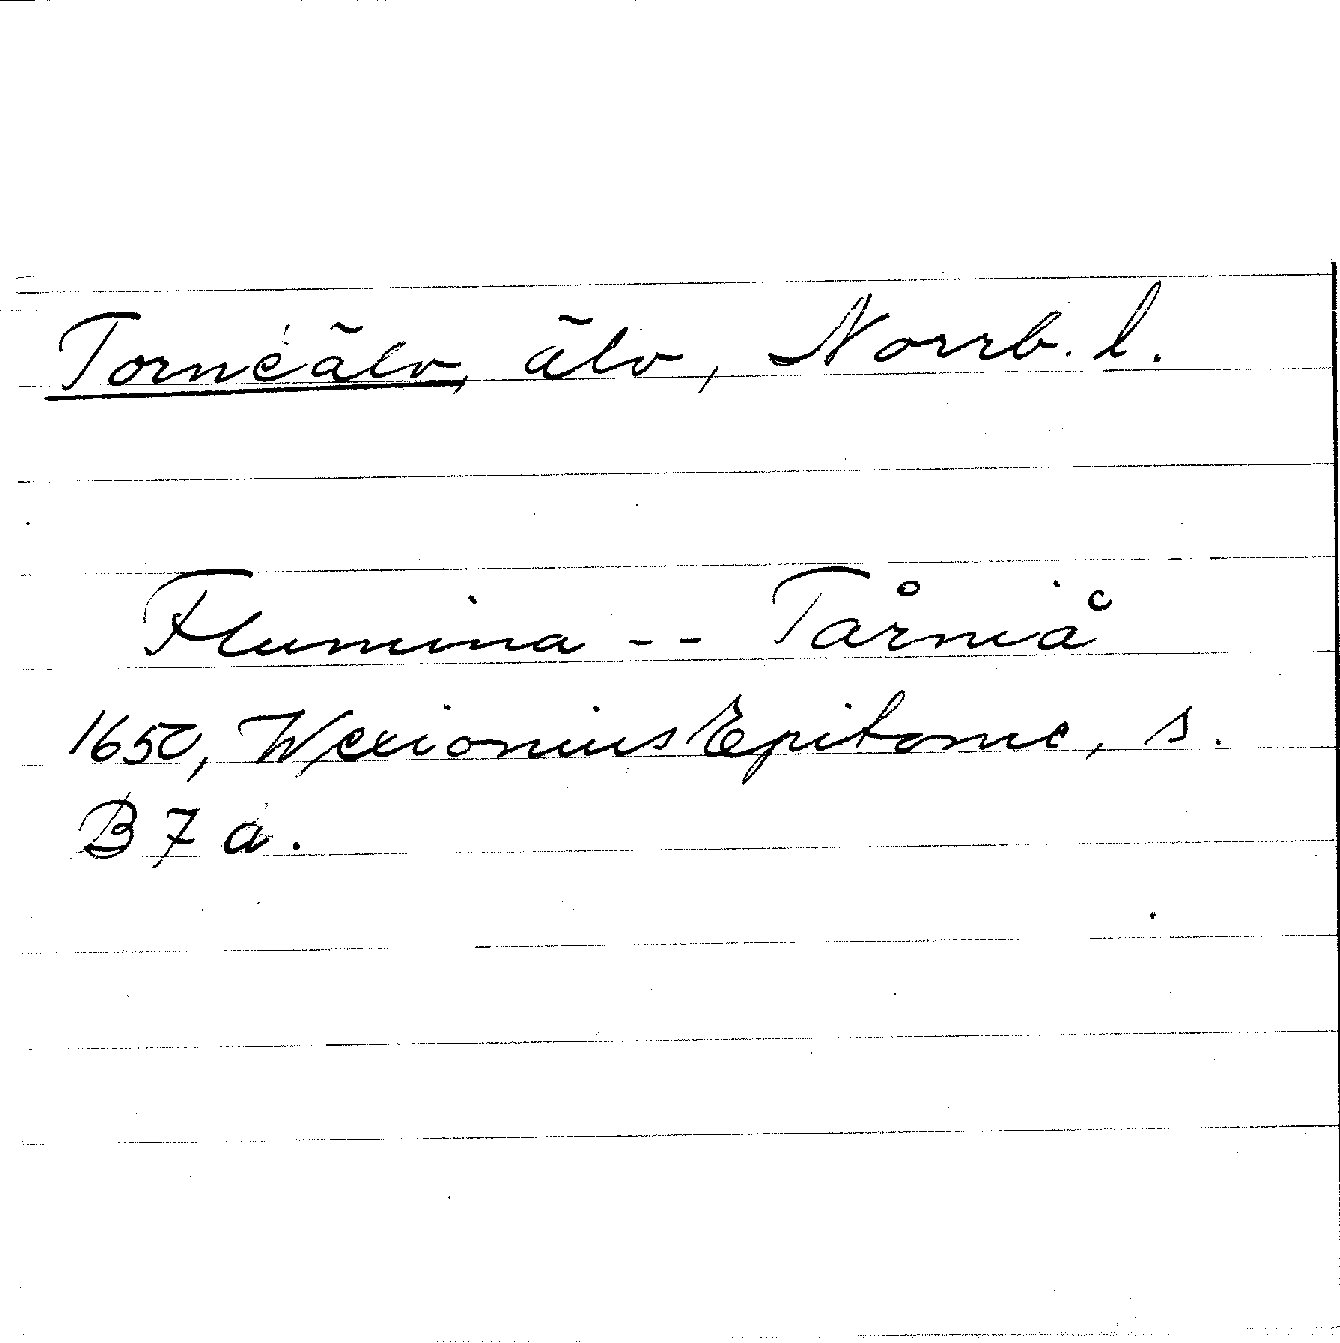 Torneälv, älv, Norrb. l.
Flumina -- Tårniå
1650, Wexionius Epitome, s.
B 7 a.